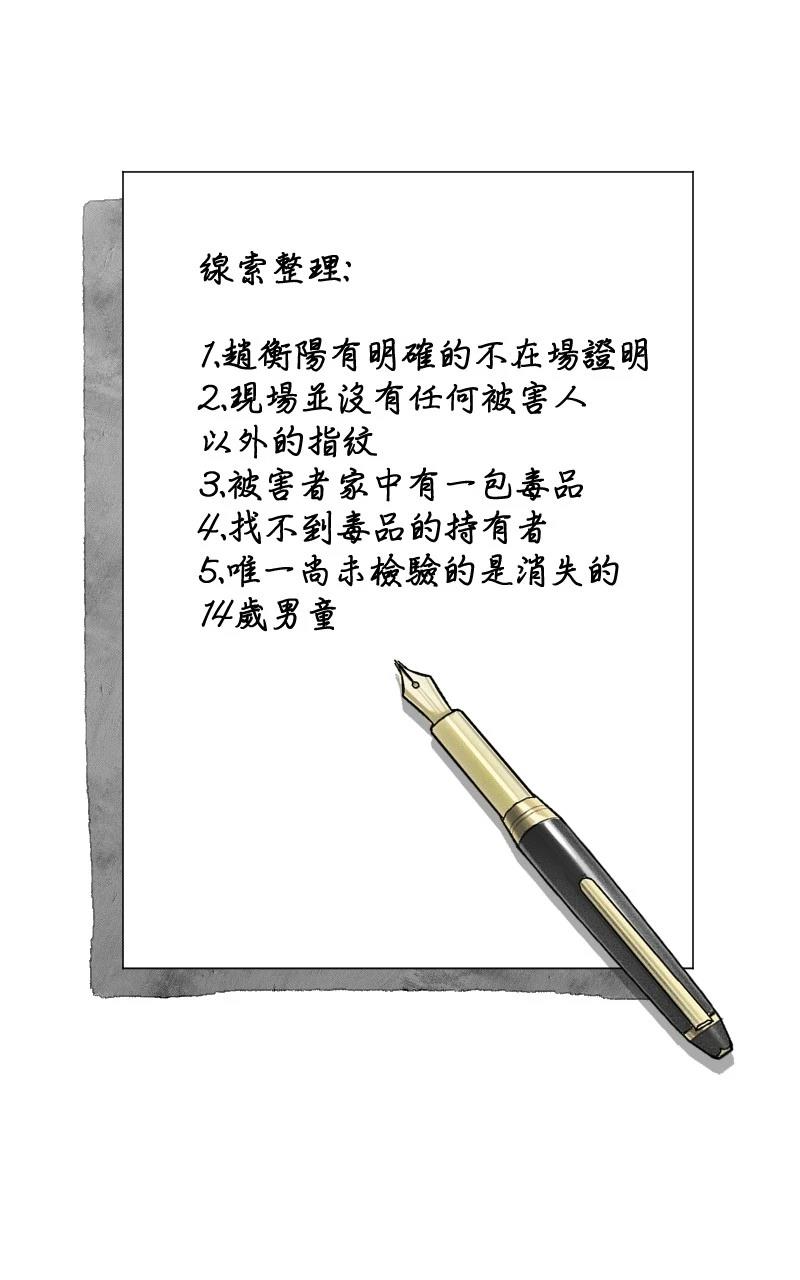 線索整理：
1、趙衡陽有明確的不在場證明
2、現場並沒有任何被害人
以外的指紋
3、被害者家中有一包毒品
4、找不到毒品的持有者
5、唯一尚未檢驗的是消失的
14歲男童